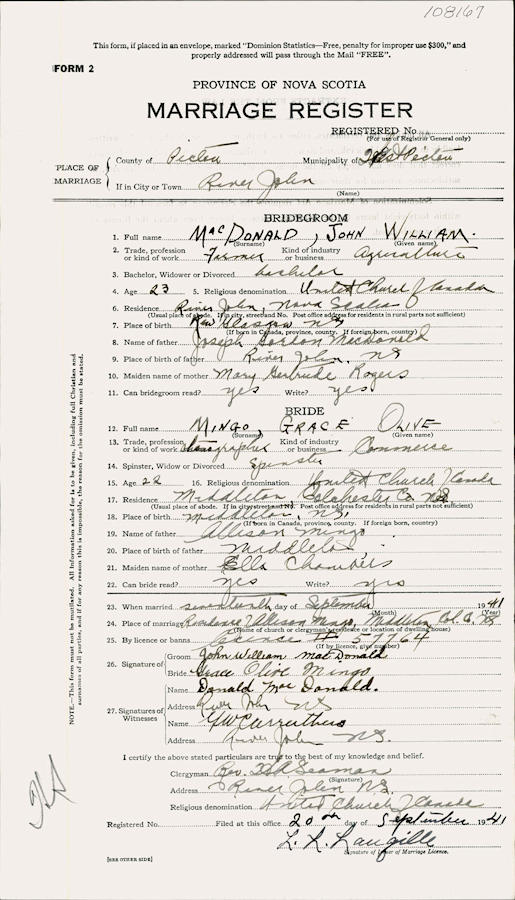 108167
This form, if placed in an envelope, marked "Dominion Statistics—Free, penalty for improper use $300," and
properly addressed will pass through the Mail "FREE".
FORM 2
PROVINCE OF NOVA SCOTIA
MARRIAGE REGISTER
REGISTERED No.
(For use of Registrar General only)
PLACE OF MARRIAGE
County of Pictou Municipality of West Pictou
If in City or Town River John
(Name)
BRIDEGROOM
1. Full name MacDonald, John William.
(Surname) (Given name)
2. Trade, profession or kind of work Farmer Kind of industry or business Agriculture
3. Bachelor, Widower or Divorced bachelor
4. Age 23 5. Religious denomination United Church of Canada
6. Residence River John, Nova Scotia
(Usual place of abode. If in city, street and No. Post office address for residents in rural parts not sufficient)
7. Place of birth New Glasgow NS
(If born in Canada, province, county. If foreign born, country)
8. Name of father Joseph Gordon Macdonald
9. Place of birth of father River John, NS
10. Maiden name of mother Mary Gertrude Rogers
11. Can bridegroom read? yes Write? yes
BRIDE
12. Full name Mingo, Grace Olive
(Surname) (Given name)
13. Trade, profession or kind of work Stenographer Kind of industry or business Commerce
14. Spinster, Widow or Divorced Spinster
15. Age 22 16. Religious denomination United Church of Canada
17. Residence Middleton, Colchester Co. NS
(Usual place of abode. If in city street and No. Post office address for residents in rural parts not sufficient)
18. Place of birth Middleton, NS,
(If born in Canada, province, county. If foreign born, country)
19. Name of father Allison Mingo
20. Place of birth of father Middleton
21. Maiden name of mother Ella Chambers
22. Can bride read? yes Write? yes
23. When married seventeenth day of September 1941
(Month) (Year)
24. Place of marriage Residence of Allison Mingo, Middleton, Col. Co. NS
(Name of church or clergyman's residence or location of dwelling house)
25. By licence or banns Licence # 57764
(If by licence, give number)
26. Signature of
Groom John William MacDonald
Bride Grace Olive Mingo
27. Signatures of Witnesses
Name Donald MacDonald.
Address River John NS
Name Carruthers
Address River John NS.
I certify the above stated particulars are true to the best of my knowledge and belief.
Clergyman Rev. Seaman
(Signature)
Address River John NS.
Religious denomination United Church of Canada
Registered No. Filed at this office 20th day of September 1941
L. R. Langille
Signature of Issuer of Marriage Licence.
[SEE OTHER SIDE]
NOTE.—This form must not be mutilated. All information asked for is to be given, including full Christian and
surnames of all parties, and if this is impossible, the reason for the omission must be stated.